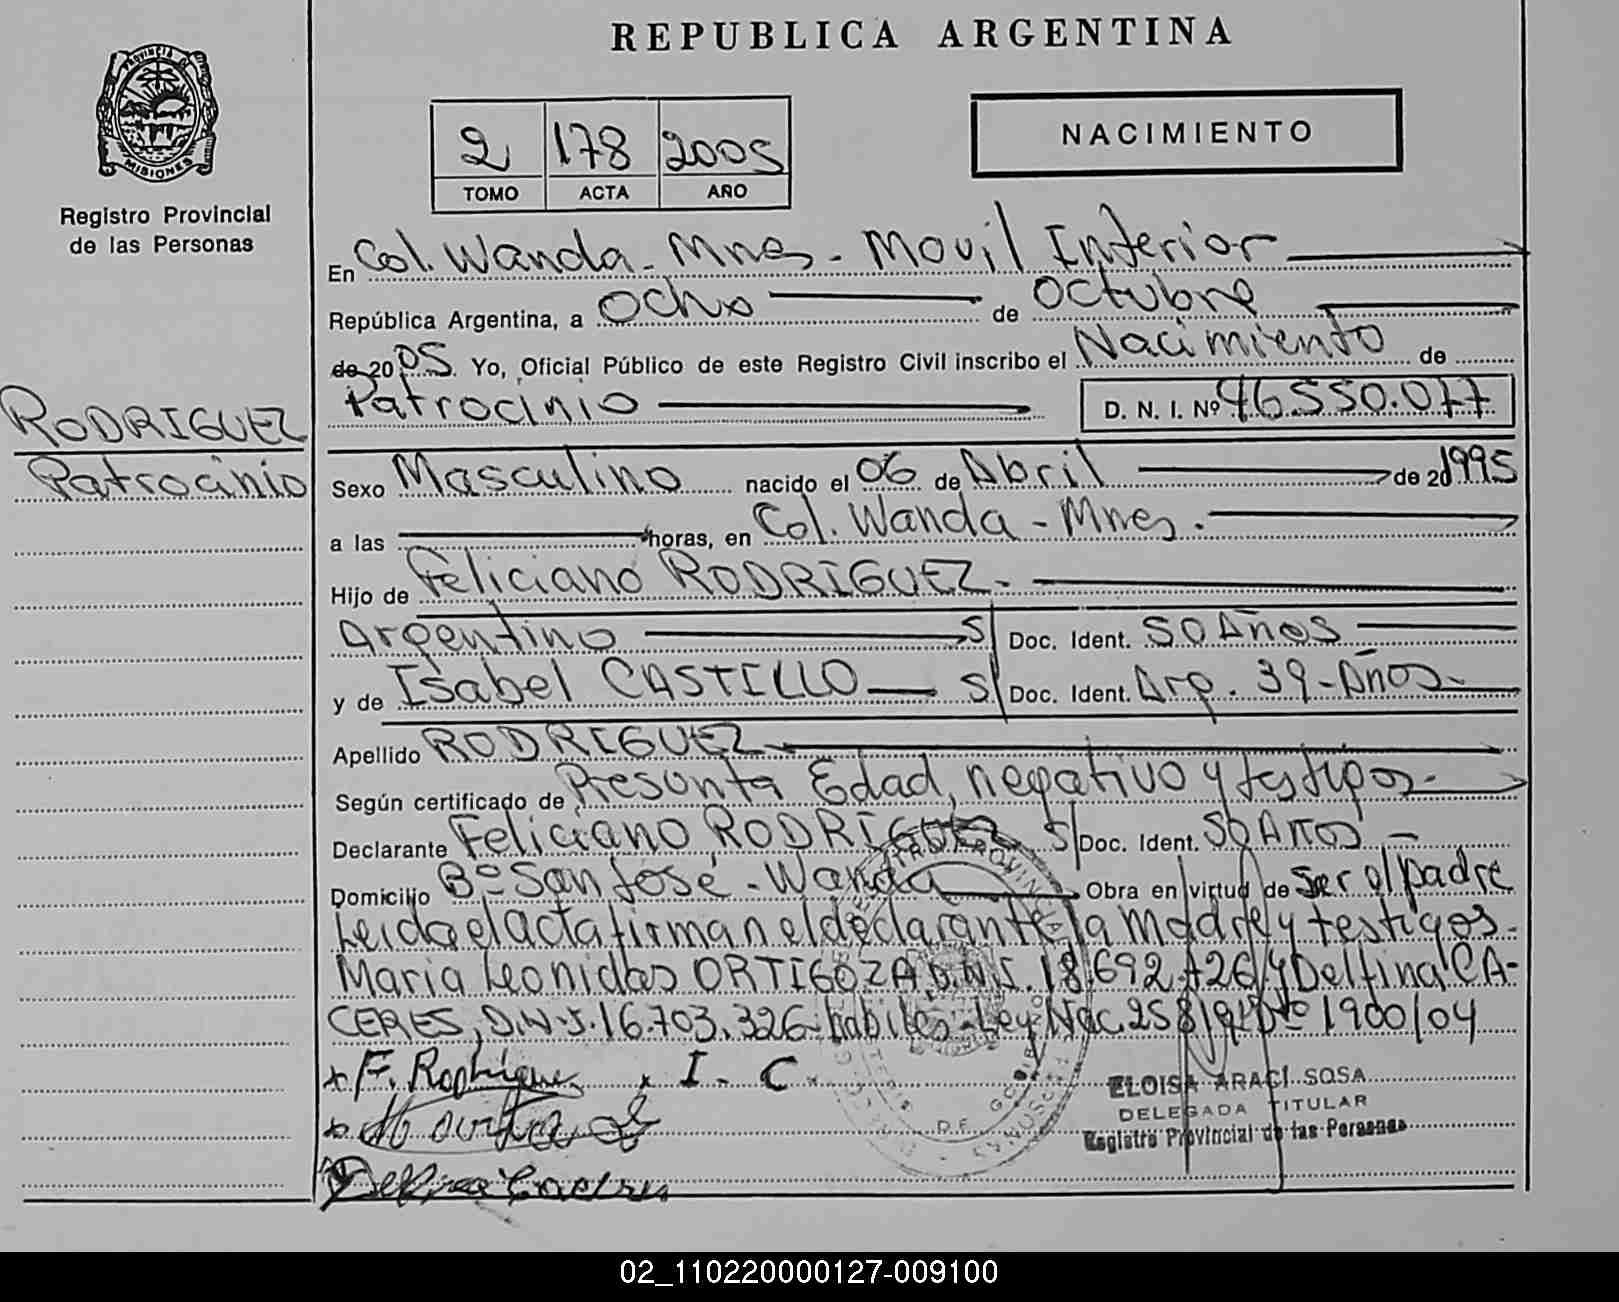 REPUBLICA ARGENTINA
PROVINCIA DE
MISIONES
Registro Provincial
de las Personas
2 178 2005
TOMO ACTA AÑO
NACIMIENTO
En Col. Wanda - Mnes - Movil Interior
República Argentina, a Ocho de Octubre
de 2005. Yo, Oficial Público de este Registro Civil inscribo el Nacimiento de
Patrocinio D. N. I. Nº 46.550.077
RODRIGUEZ
Patrocinio
Sexo Masculino nacido el 06 de Abril de 20 1995
a las horas, en Col. Wanda - Mnes.
Hijo de Feliciano RODRIGUEZ -
Argentino S/ Doc. Ident. 50 Años
y de Isabel CASTILLO S/ Doc. Ident. Arg. 39 - Años -
Apellido RODRIGUEZ
Según certificado de Presunta Edad, negativo y testigos -
Declarante Feliciano RODRIGUEZ S/ Doc. Ident. 50 Años -
Domicilio Bº San José - Wanda Obra en virtud de Ser el padre
Leida el acta firman el declarante la Madre y testigos -
Maria Leonidas ORTIGOZA, D.N.I. 18.692.426 y Delfina CA-
CERES, D.N.I. 16.703.326 habiles - Ley Nac. 25819 Dto 1900/04
x F. Rodriguez x I. C.
ELOISA ARACI SOSA
DELEGADA TITULAR
Registro Provincial de las Personas
Delfina Caceres
02_110220000127-009100